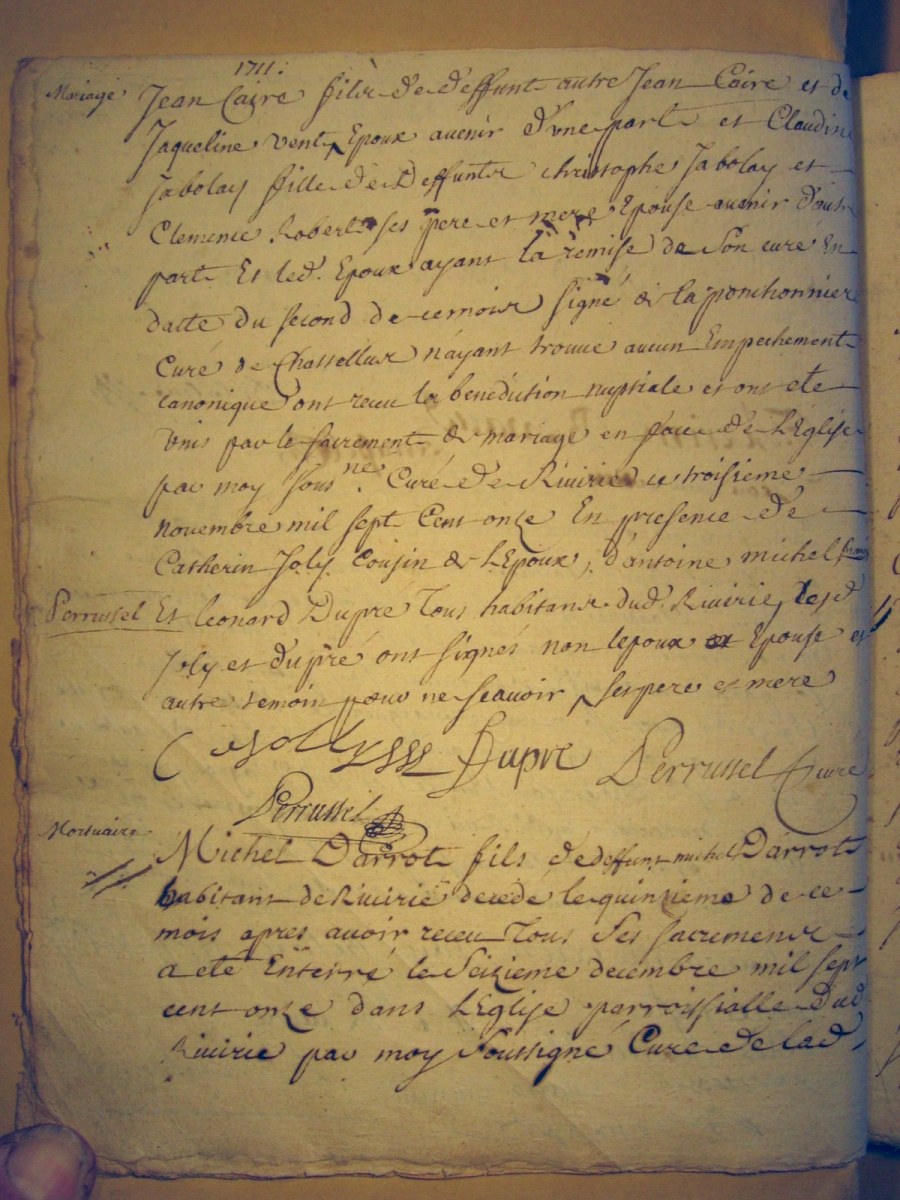 1711.
Mariage
Jean Caire fils de deffunt autre Jean Caire et de
Jaqueline vent Epoux avenir d'vne part et Claudine
Jabolay fille de Deffunts christophe Jabolay et
Clemence Robert ses pere et mere Epouse avenir d'autre
part Et led. Epoux ayant la remise de son curé En
datte du second de ce mois signé de la ponchonniere
Curé de Chastellus n'ayant trouue aucun Empechement
canonique ont receu la benediction nuptiale et ont ete
vnis par le sacrement de mariage en face de l'Eglise
par moy sousne. Curé de Riuirie ce troisieme
novembre mil sept Cent onze En presence de
Catherin Joly Cousin de l'Epoux, d'antoine michel
Perrussel Et leonard Dupré Tous habitans dud. Riuirie, lesd
Joly et dupré ont signés non lepoux et Epouse et
autre temoin pour ne scauoir, ses pere et mere
C Jolly Dupre Perrussel Curé
Perrussel
Mortuaire
Michel Darrot fils de deffunt michel Darrot
habitant de Riuirie decede le quinzieme de ce
mois apres auoir receu Tous ses sacremens
a ete Enterré le Seizieme decembre mil sept
cent onze dans l'Eglise parroissialle dud
Riuirie par moy Soussigné Cure de lad,